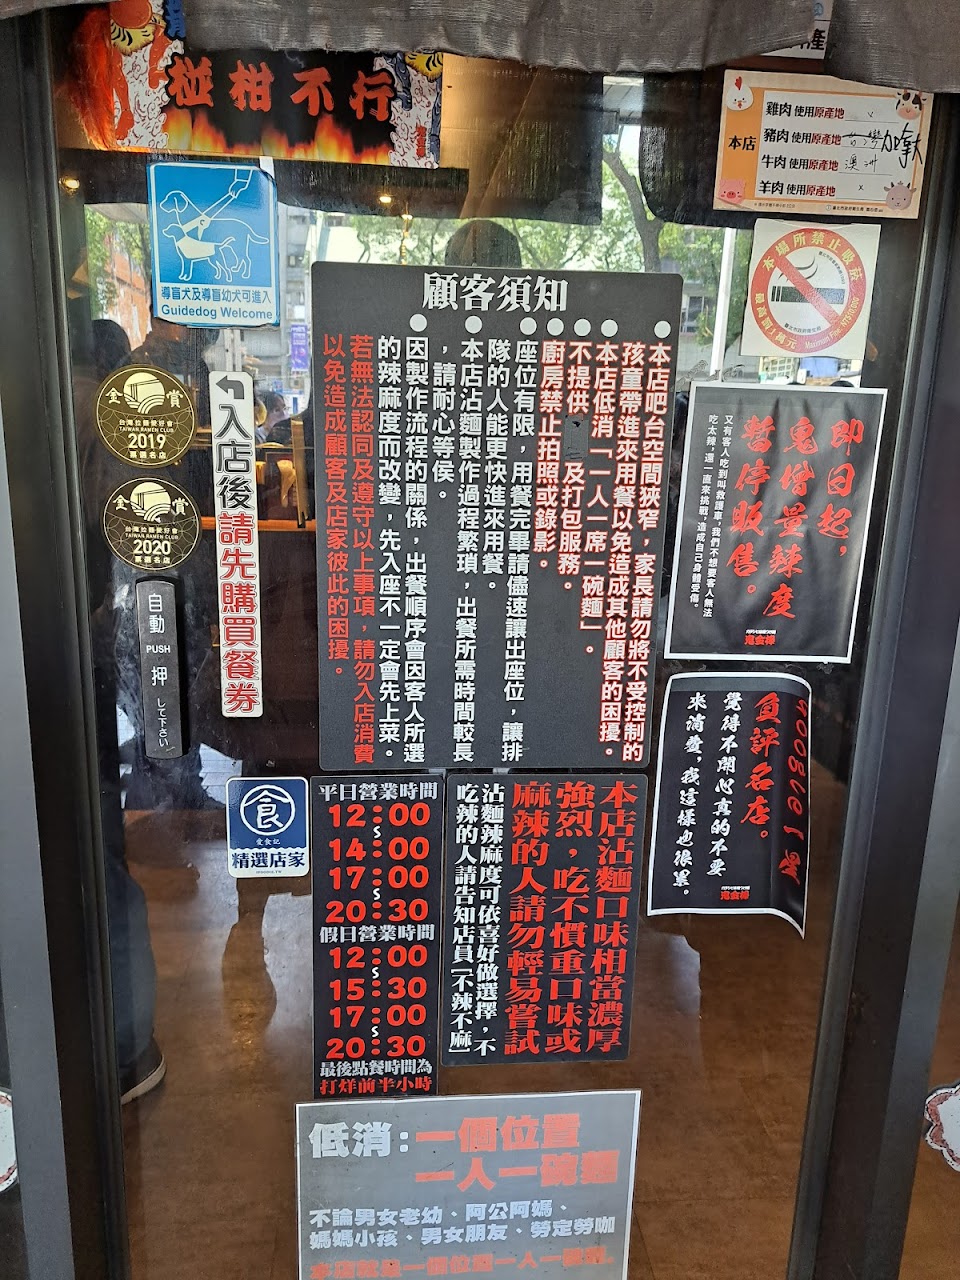 椪柑不行
產
本店
雞肉 使用原產地
豬肉 使用原產地 台灣 加拿大
牛肉 使用原產地 澳洲
羊肉 使用原產地 x
導盲犬及導盲幼犬可進入
Guidedog Welcome
本場所禁止吸菸
最高罰1萬元
Maximum Fine: NT$10,000
顧客須知
●本店吧台空間狹窄，家長請勿將不受控制的
孩童帶進來用餐以免造成其他顧客的困擾。
●本店低消「一人一席一碗麵」。
●不提供 及打包服務。
●廚房禁止拍照或錄影。
●座位有限，用餐完畢請儘速讓出座位，讓排
隊的人能更快進來用餐。
●本店沾麵製作過程繁瑣，出餐所需時間較長
，請耐心等侯。
●因製作流程的關係，出餐順序會因客人所選
的辣麻度而改變，先入座不一定會先上菜。
若無法認同及遵守以上事項，請勿入店消費
以免造成顧客及店家彼此的困擾。
金賞
台灣拉麵愛好會
TAIWAN RAMEN CLUB
2019
票選名店
金賞
台灣拉麵愛好會
TAIWAN RAMEN CLUB
2020
票選名店
入店後請先購買餐券
自動
PUSH
押
して下さい
即日起，
鬼增量辣度
暫停販售。
又有客人吃到叫救護車，我們不想要客人無法
吃太辣，還一直來挑戰，造成自己身體受傷。
鬼金棒
google 1星
負評名店。
覺得不開心真的不要
來消費，我這樣也很累。
鬼金棒
食
愛食記
精選店家
平日營業時間
12:00
~
14:00
17:00
~
20:30
假日營業時間
12:00
~
15:30
17:00
~
20:30
最後點餐時間為
打烊前半小時
本店沾麵口味相當濃厚
強烈，吃不慣重口味或
麻辣的人請勿輕易嘗試
沾麵辣麻度可依喜好做選擇，不
吃辣的人請告知店員[不辣不麻]
低消:一個位置
一人一碗麵
不論男女老幼、阿公阿媽、
媽媽小孩、男女朋友、勞定勞咖
本店就是一個位置一人一碗麵。